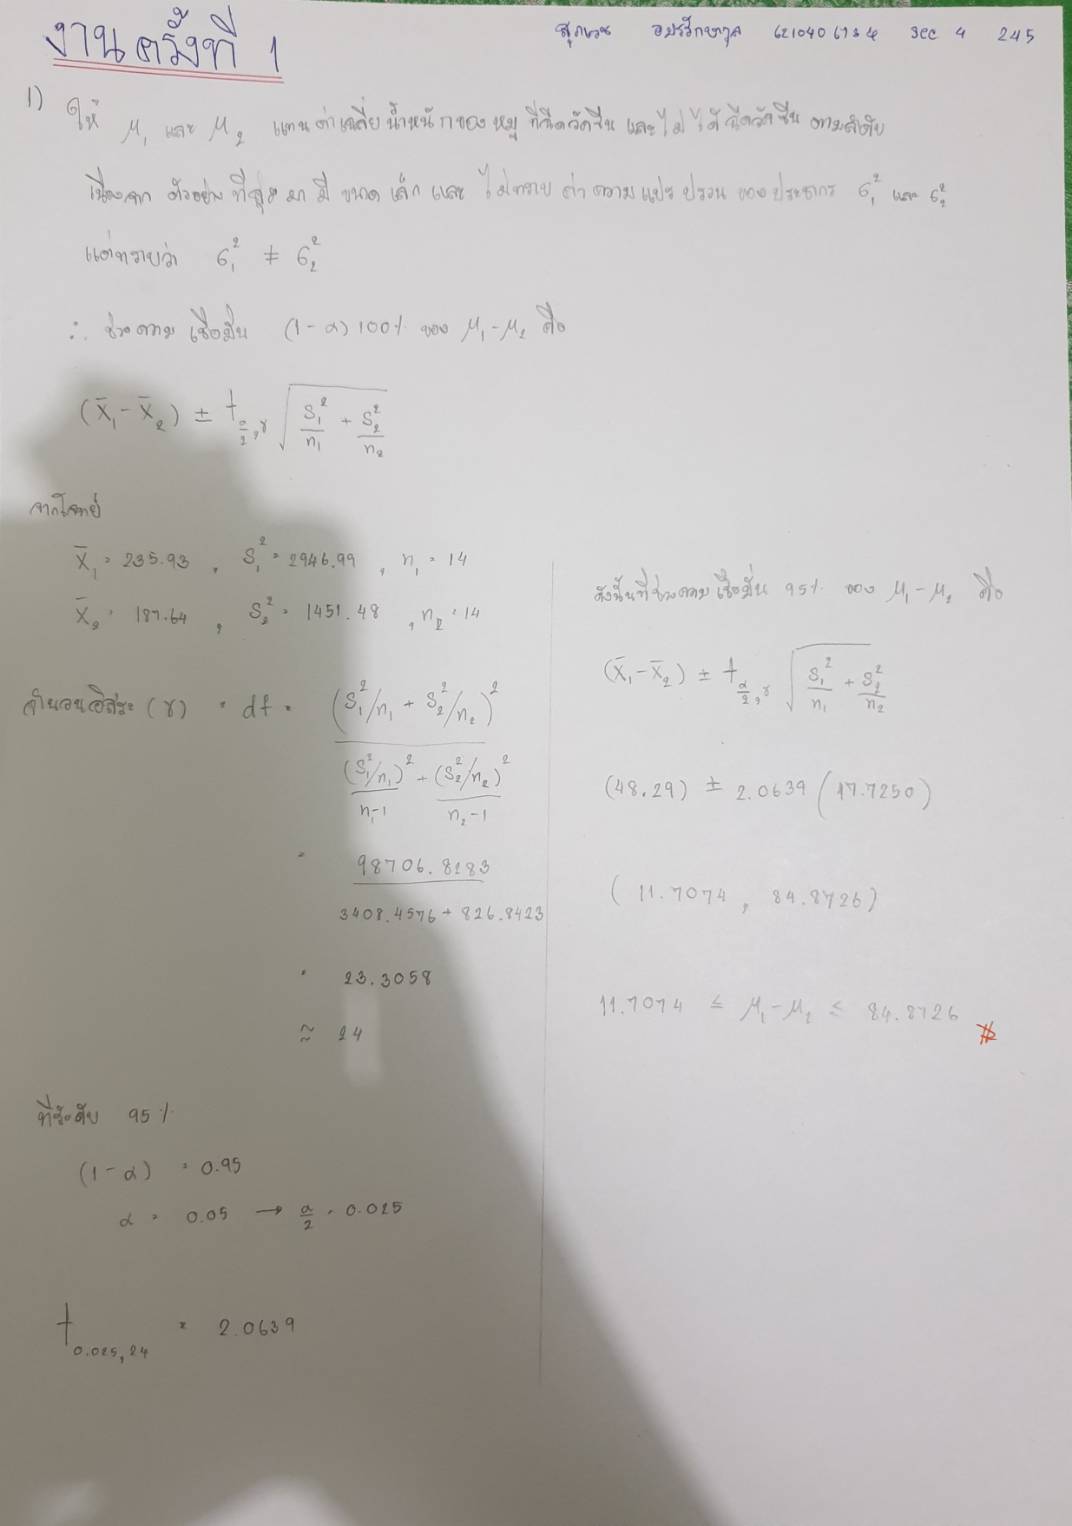 งานครั้งที่ 1
6210406734 sec 4 245
1) ให้ μ₁ และ μ₂ แทนค่าเฉลี่ยน้ำหนักของหมู ที่ฉีดวัคซีน และไม่ได้ฉีดวัคซีน ตามลำดับ
เนื่องจาก ตัวอย่างที่สุ่มมา มี ขนาดเล็ก และ ไม่ทราบ ค่าความแปรปรวน ของประชากร σ₁² และ σ₂²
แต่ทราบว่า σ₁² ≠ σ₂²
∴ ช่วงความเชื่อมั่น (1-α)100% ของ μ₁-μ₂ คือ
(X̄₁-X̄₂) ± t_{α/2,γ} √(S₁²/n₁ + S₂²/n₂)
จากโจทย์
X̄₁ = 235.93 , S₁² = 2946.99 , n₁ = 14
X̄₂ = 187.64 , S₂² = 1451.48 , n₂ = 14
จำนวนอิสระ (γ) = df = (S₁²/n₁ + S₂²/n₂)²
(S₁²/n₁)²/(n₁-1) + (S₂²/n₂)²/(n₂-1)
= 98706.8183
3408.4576 + 826.8423
= 23.3058
≈ 24
ที่ระดับ 95%
(1-α) = 0.95
α = 0.05 → α/2 = 0.025
t_{0.025,24} = 2.0639
ดังนั้นที่ช่วงความเชื่อมั่น 95% ของ μ₁-μ₂ คือ
(X̄₁-X̄₂) ± t_{α/2,γ} √(S₁²/n₁ + S₂²/n₂)
(48.29) ± 2.0639 (17.7250)
(11.7074 , 84.8726)
11.7074 ≤ μ₁-μ₂ ≤ 84.8726